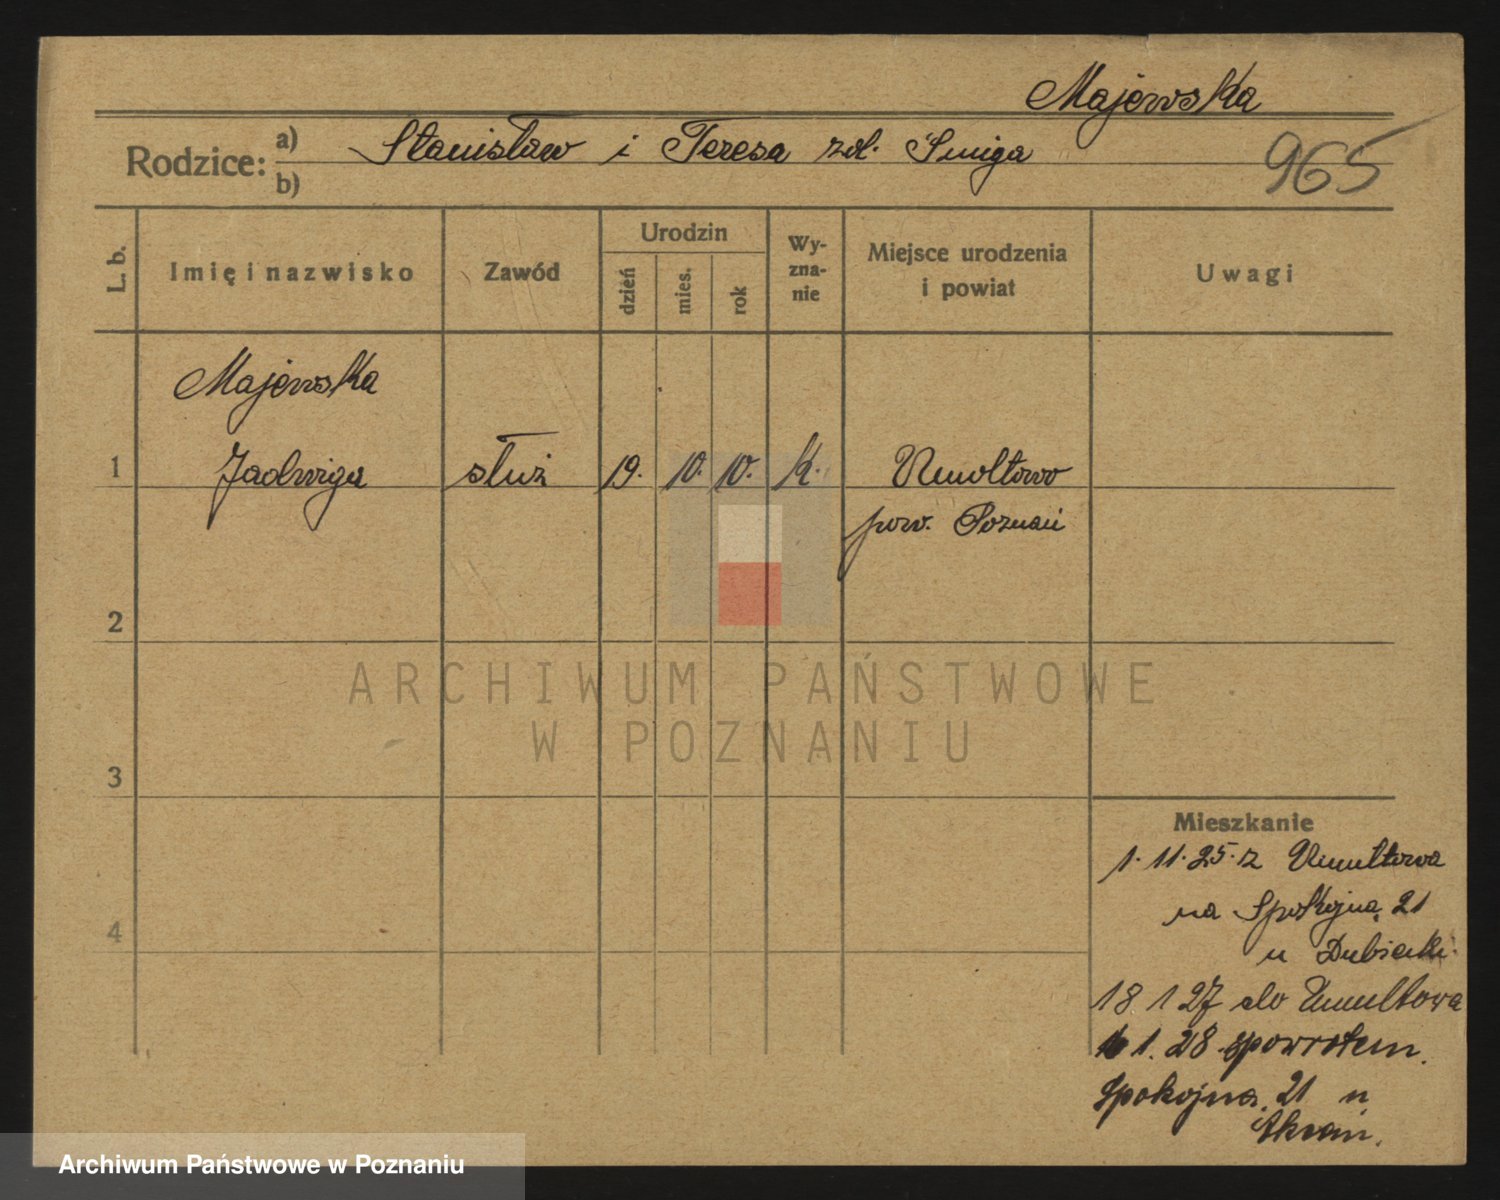 Majewska
Rodzice: a) Stanisław i Teresa zd. Śmiga
b)
965
L. b. Imię i nazwisko Zawód Urodzin dzień mies. rok Wyzna-nie Miejsce urodzenia i powiat Uwagi
Majewska
1 Jadwiga służ 19. 10. 10. k. Umoltowo
pow. Poznań
2
ARCHIWUM PAŃSTWOWE
W POZNANIU
3
Mieszkanie
1. 11. 25. z Umultowa
na Spokojną 21
4
u
18 1 27 do Umultowa
1. 28 spowrotem.
Spokojna 21 u
Archiwum Państwowe w Poznaniu